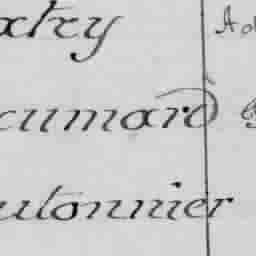 xtry
cumard
utonnier